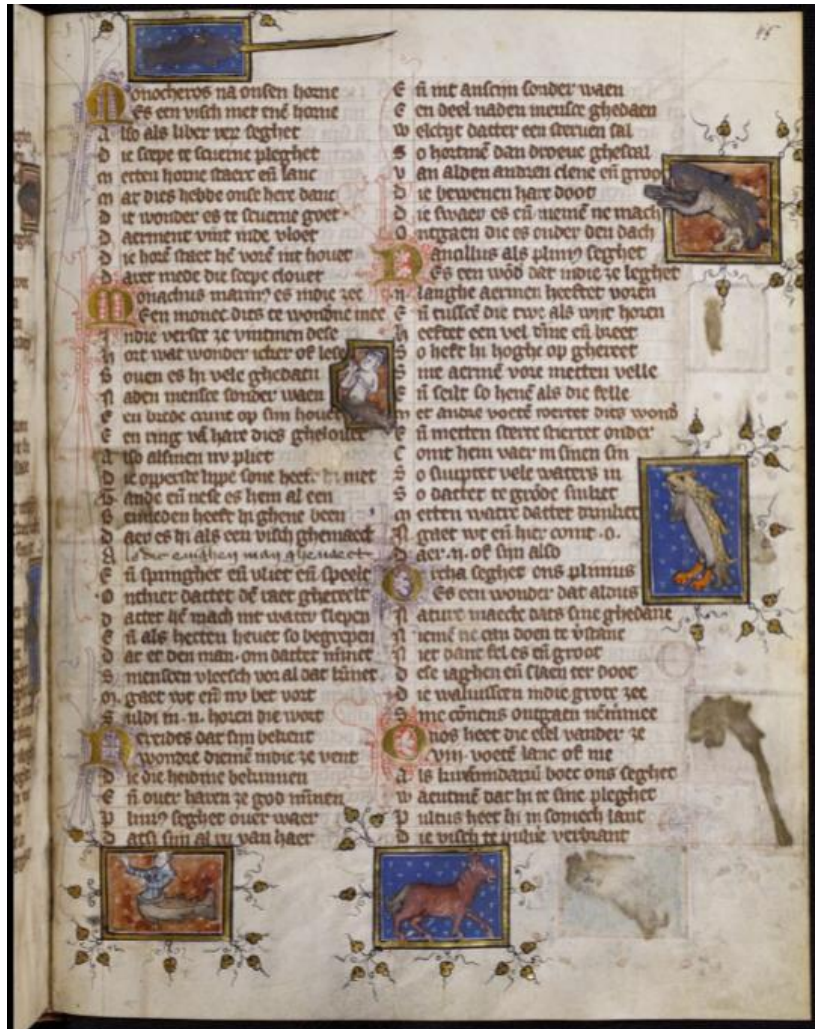 Monocheros na onsen horne
Es een visch met enē horne
Also als liber rer seghet
Die scepe te scuerne pleghet
Metten horne staerc eñ lanc
Mar dies hebbe onse here danc
Dit wonder es te scuerne groet
Daerment vint inde vloet
Die horē staet hē vorē int houet
Daret mede die scepe clouet
Monachus marinꝯ es indie zee
Een monec dits te wondne mee
Indie verste ze vintmen dese
Hort wat wonder icker of lese
Bouen es hi vele ghedaen
Naden mensce sonder waen
Een brede crune op sijn houet
Een ring vā hare dies ghelouet
Also alsmen nv pliet
Die opperste lippe sone heeft hi niet
Tande eñ nese es hem al een
Beneden heeft hi ghene been
Daer es hi als een visch ghemaect
Als die enighen man ghenaect
Eñ springhet eñ vliet eñ speelt
Onthier dattet dē raet ghereelt
Dattet hē mach int water slepen
Eñ als hettē heuet so begrepen
Dar et den man. om dattet minet
Smenscen vleesch vor al dat kinet
M. gaet wt eñ nv bet vort
Suldi in .n. horen die wort
Nereides dat sijn bekent
Wondre diemē indie ze vent
Die die heidine bekinnen
Eñ ouer haren ze god minnen
Plinꝯ seghet ouer waer
Datsi sijn al ru van haer
Eñ int anscijn sonder waen
Een deel naden mensce ghedaen
Welctyt datter een steruen sal
So hortmē dan droeue ghescal
Van alden andren clene eñ groot
Die bewenen hare doot
Die swaer es eñ niemē ne mach
Ontgaen die es onder den dach
Nancillus als plinꝯ seghet
Es een wōd dat indie ze leghet
.ij. langhe aermen heeftet voren
Eñ tusscē die twe als wijt horen
Heeftet een vel dīne eñ breet
So heft hi hoghe op ghereet
Sine aermē vore metten velle
Eñ seilt so henē als die felle
Met andrē voetē roertet dits wond
Eñ metten sterte stiertet onder
Comt hem vaer in sinen sin
So suuptet vele waters in
So dattet te gronde sinket
Metten watre dattet drinket
N gaet wt eñ hier comt .o.
Daer .n. of sijn also
Orcha seghet ons plinius
Es een wonder dat aldus
Nature maecte dats sine ghedane
Niemē ne can doen te vstane
Niet dane fel es eñ groot
Dese iaghen eñ slaen ter doot
Die waluisscen indie grote zee
Sine cōnens ontgaen nēmmee
Onos heet die esel vander ze
VIII. voetē lanc of me
Als
boec ons seghet
Pultus heet hi in somech lant
Die visch